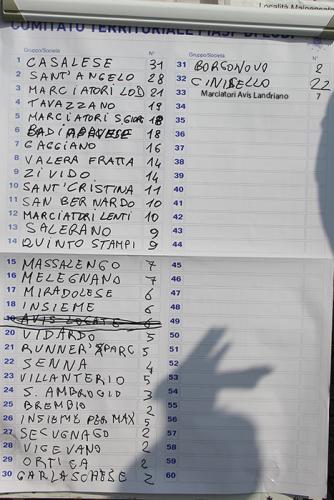 Località Malpensata
COMITATO TERRITORIALE FIASP DI LODI
Gruppo/Società N°
1 CASALESE 31
2 SANT'ANGELO 28
3 MARCIATORI LODI 21
4 TAVAZZANO 19
5 MARCIATORI S.GIOR 18
6 BADIA PAVESE 18
7 GAGGIANO 16
8 VALERA FRATTA 14
9 ZIVIDO 14
10 SANT'CRISTINA 11
11 SAN BERNARDO 10
12 MARCIATORI LENTI 10
13 SALERANO 9
14 QUINTO STAMPI 9
15 MASSALENGO 7
16 MELEGNANO 7
17 MIRADOLESE 6
18 INSIEME 6
19 AVIS LOCATE 6
20 VIDARDO 5
21 RUNNER'S PARC 5
22 SENNA 4
23 VILLANTERIO 5
24 S. AMBROGIO 3
25 BREMBIO 2
26 INSIEME PER MAX 5
27 SECUGNAGO 2
28 VIGEVANO 2
29 ORTICA 2
30 GARLASCHESE 2
Gruppo/Società N°
31 BORGONOVO 2
32 CINISELLO 22
33 Marciatori Avis Landriano 7
34
35
36
37
38
39
40
41
42
43
44
45
46
47
48
49
50
51
52
53
54
55
56
57
58
59
60